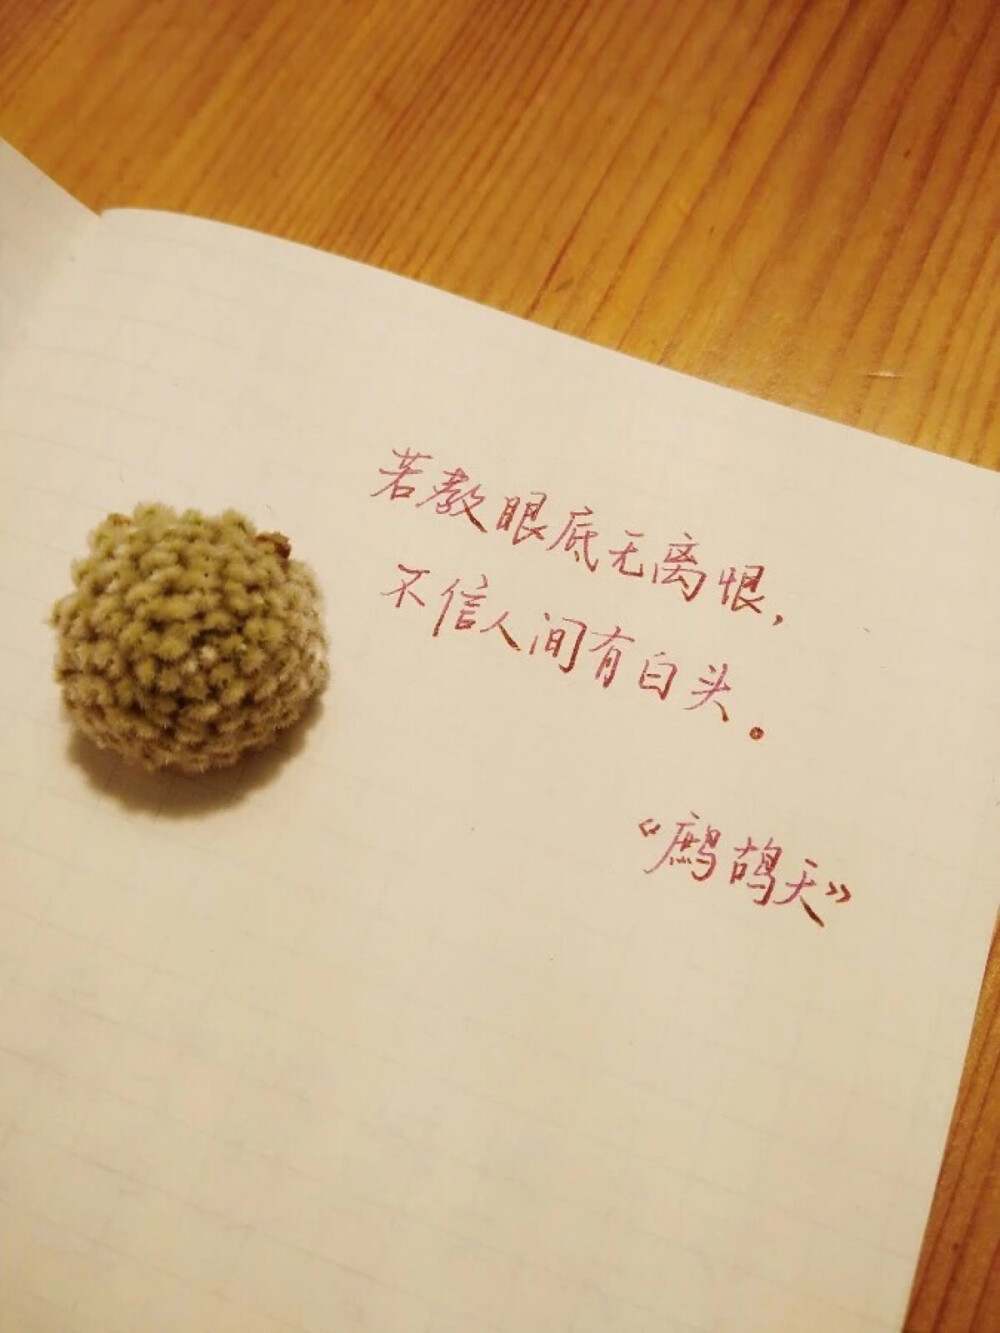 若教眼底无离恨，
不信人间有白头。
《鹧鸪天》